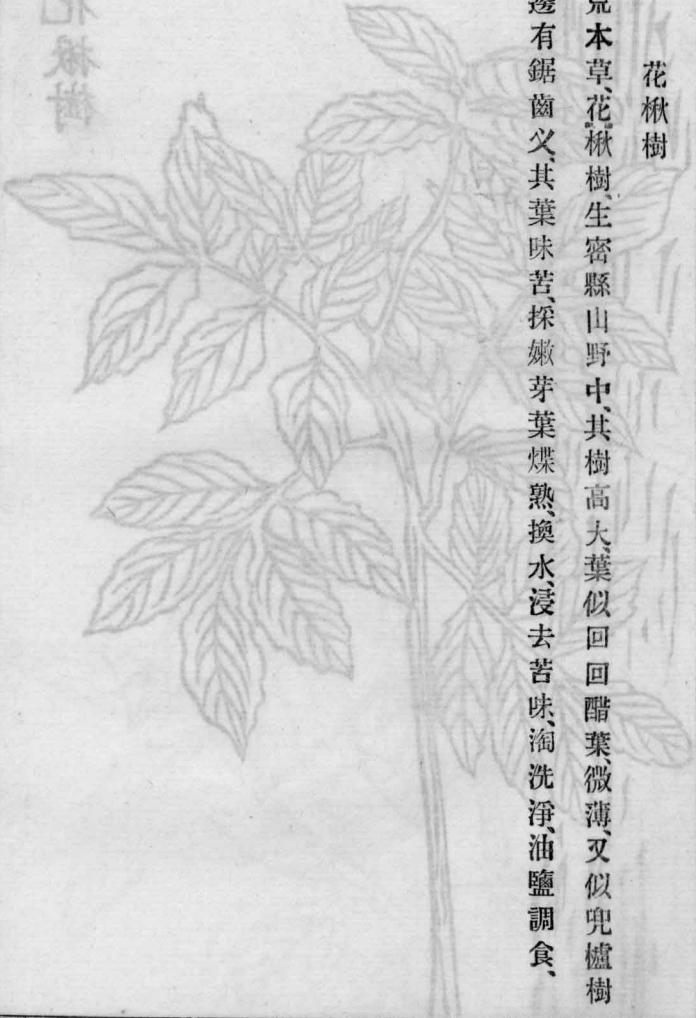 花楸樹
荒本草、花楸樹、生密縣山野中、其樹高大、葉似回回醋葉、微薄、又似兜櫨樹
邊有鋸齒叉、其葉味苦、採嫩芽葉煠熟、換水、浸去苦味、淘洗淨、油鹽調食、